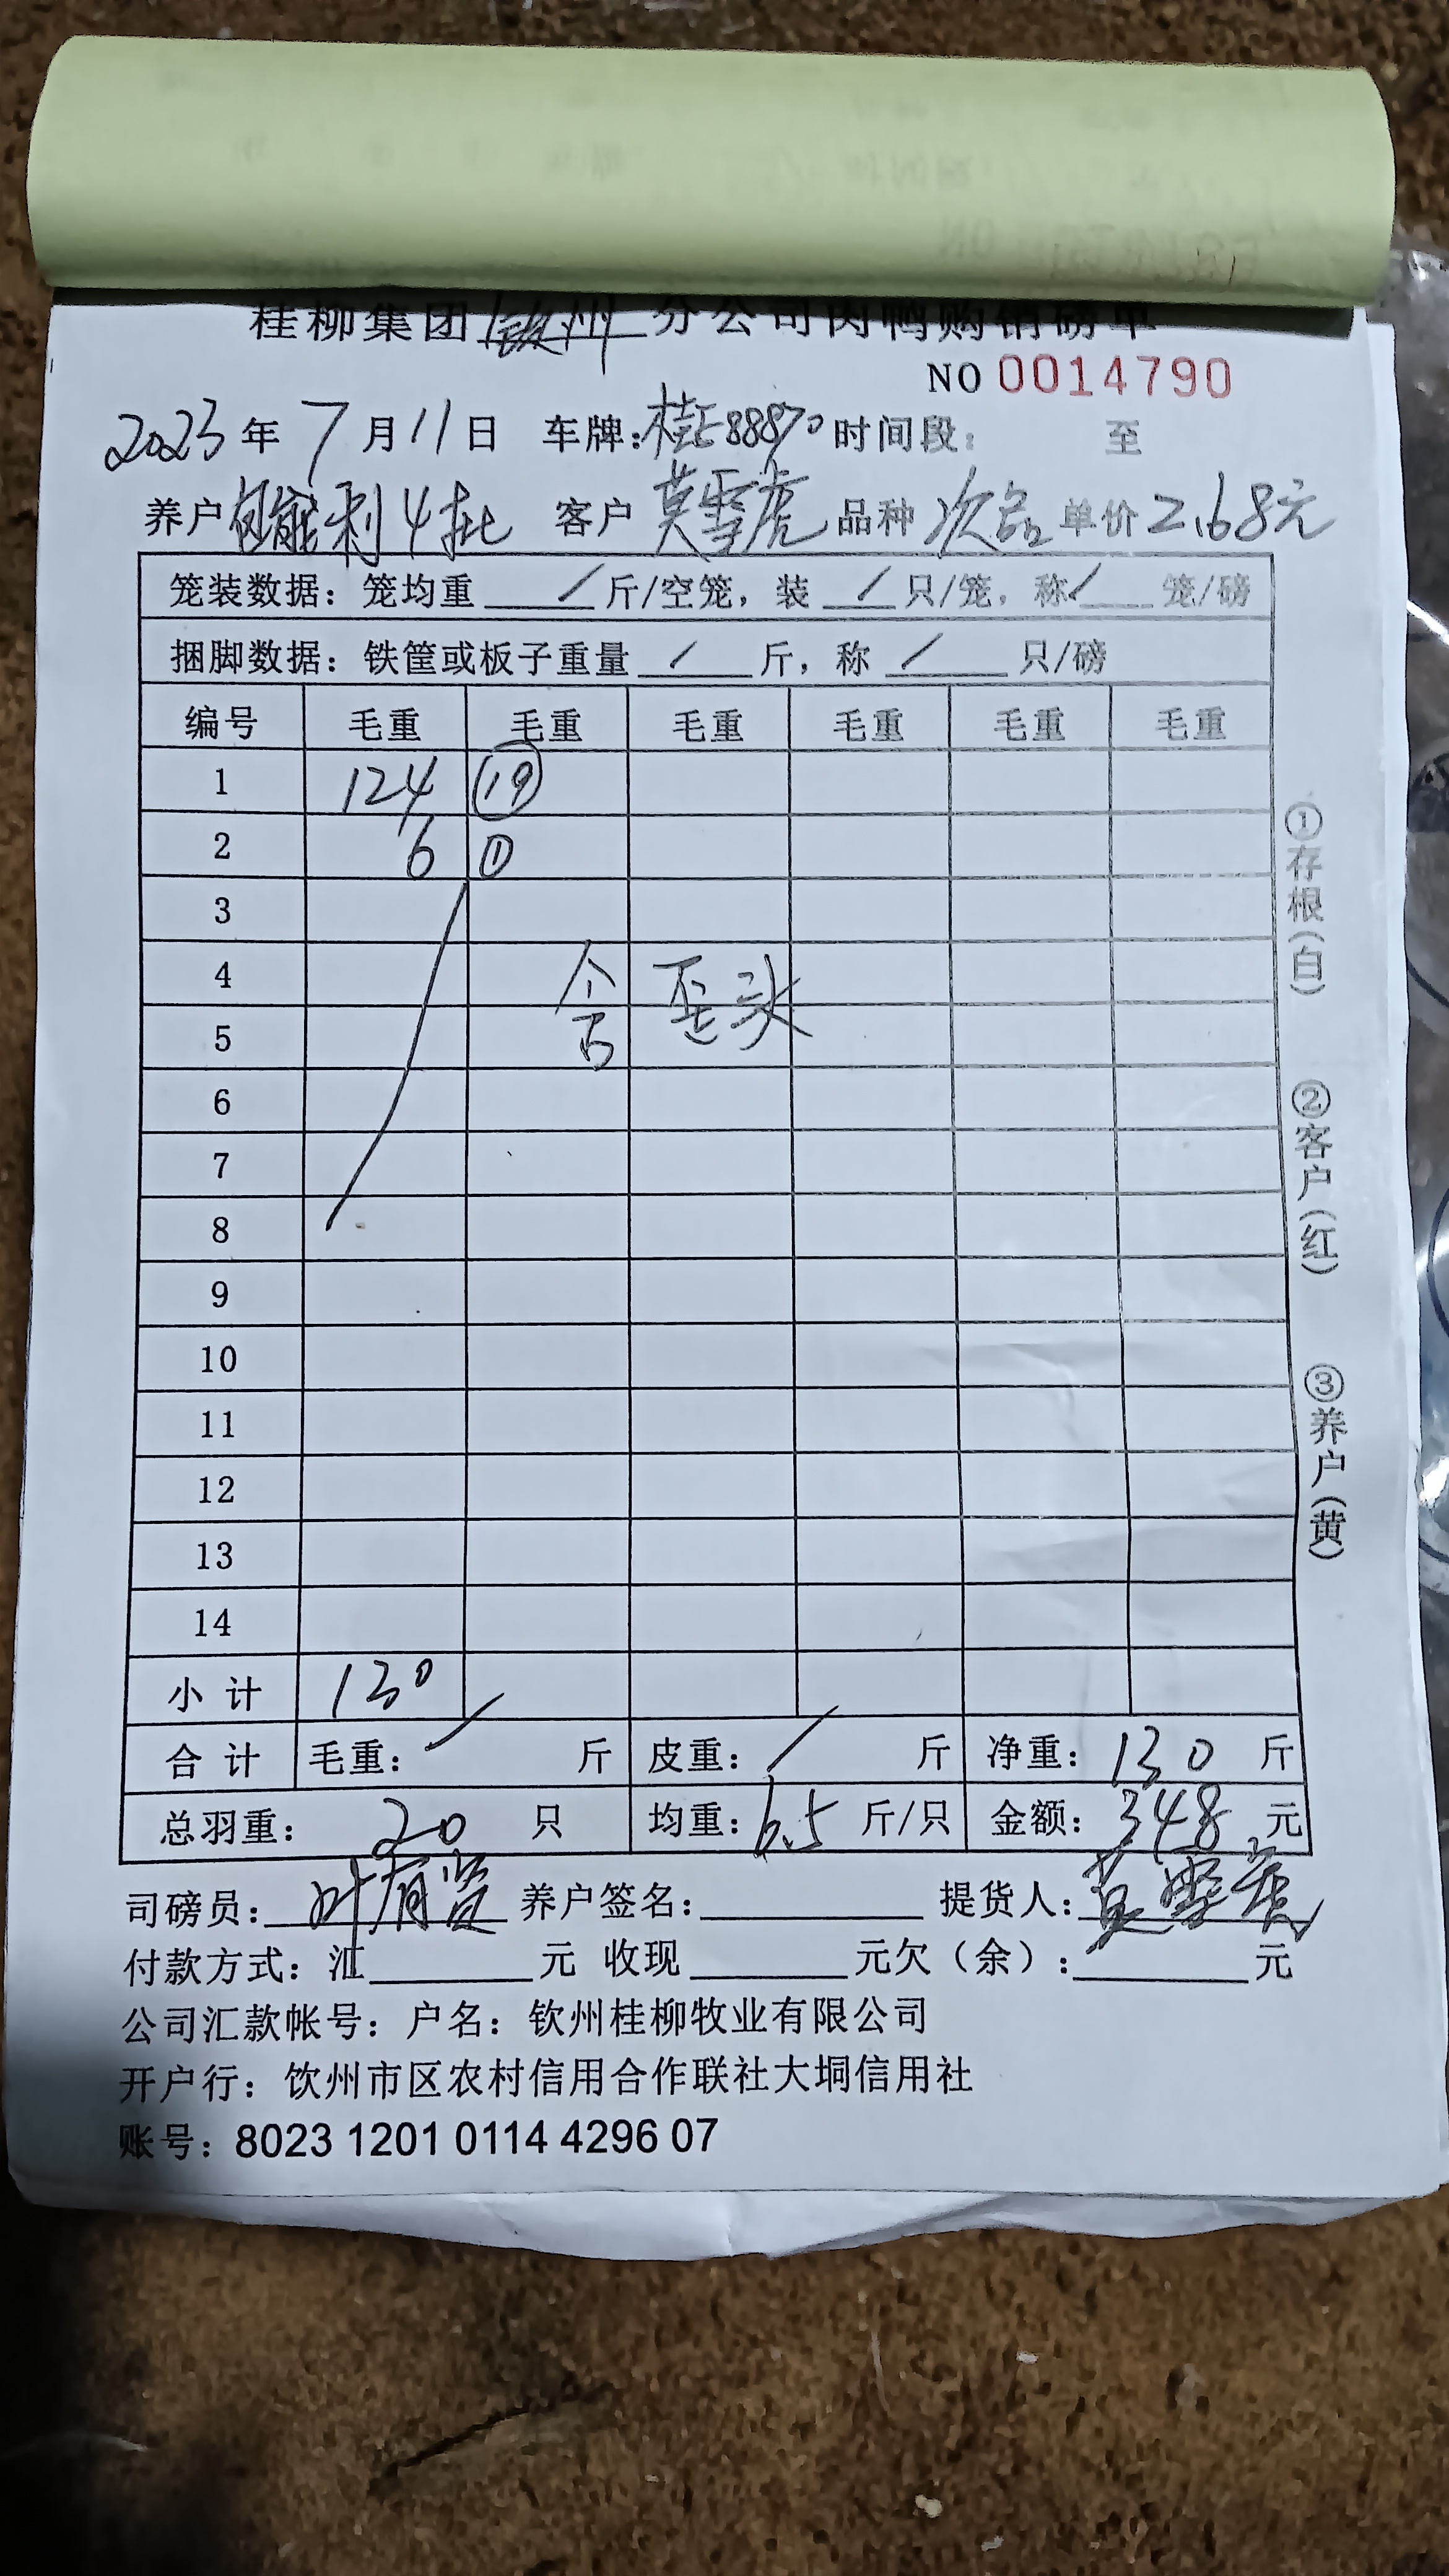 桂柳集团 钦州 分公司肉鸭购销磅单
NO 0014790
2023 年 7 月 11 日 车牌: 桂E88870 时间段: 至
养户 利4批 客户 莫雪虎 品种 次品 单价 2.68元
笼装数据: 笼均重 / 斤/空笼, 装 / 只/笼, 称 / 笼/磅
捆脚数据: 铁筐或板子重量 / 斤, 称 / 只/磅
编号 毛重 毛重 毛重 毛重 毛重 毛重
1 124 ⑲
2 6 ①
3
4 含 歪头
5
6
7
8
9
10
11
12
13
14
小计 130
合计 毛重: / 斤 皮重: / 斤 净重: 130 斤
总羽重: 20 只 均重: 6.5 斤/只 金额: 348 元
司磅员: 叶有贤 养户签名: 提货人: 莫雪虎
付款方式: 汇 元 收现 元欠(余): 元
公司汇款帐号: 户名: 钦州桂柳牧业有限公司
开户行: 饮州市区农村信用合作联社大垌信用社
账号: 8023 1201 0114 4296 07
①存根(白) ②客户(红) ③养户(黄)